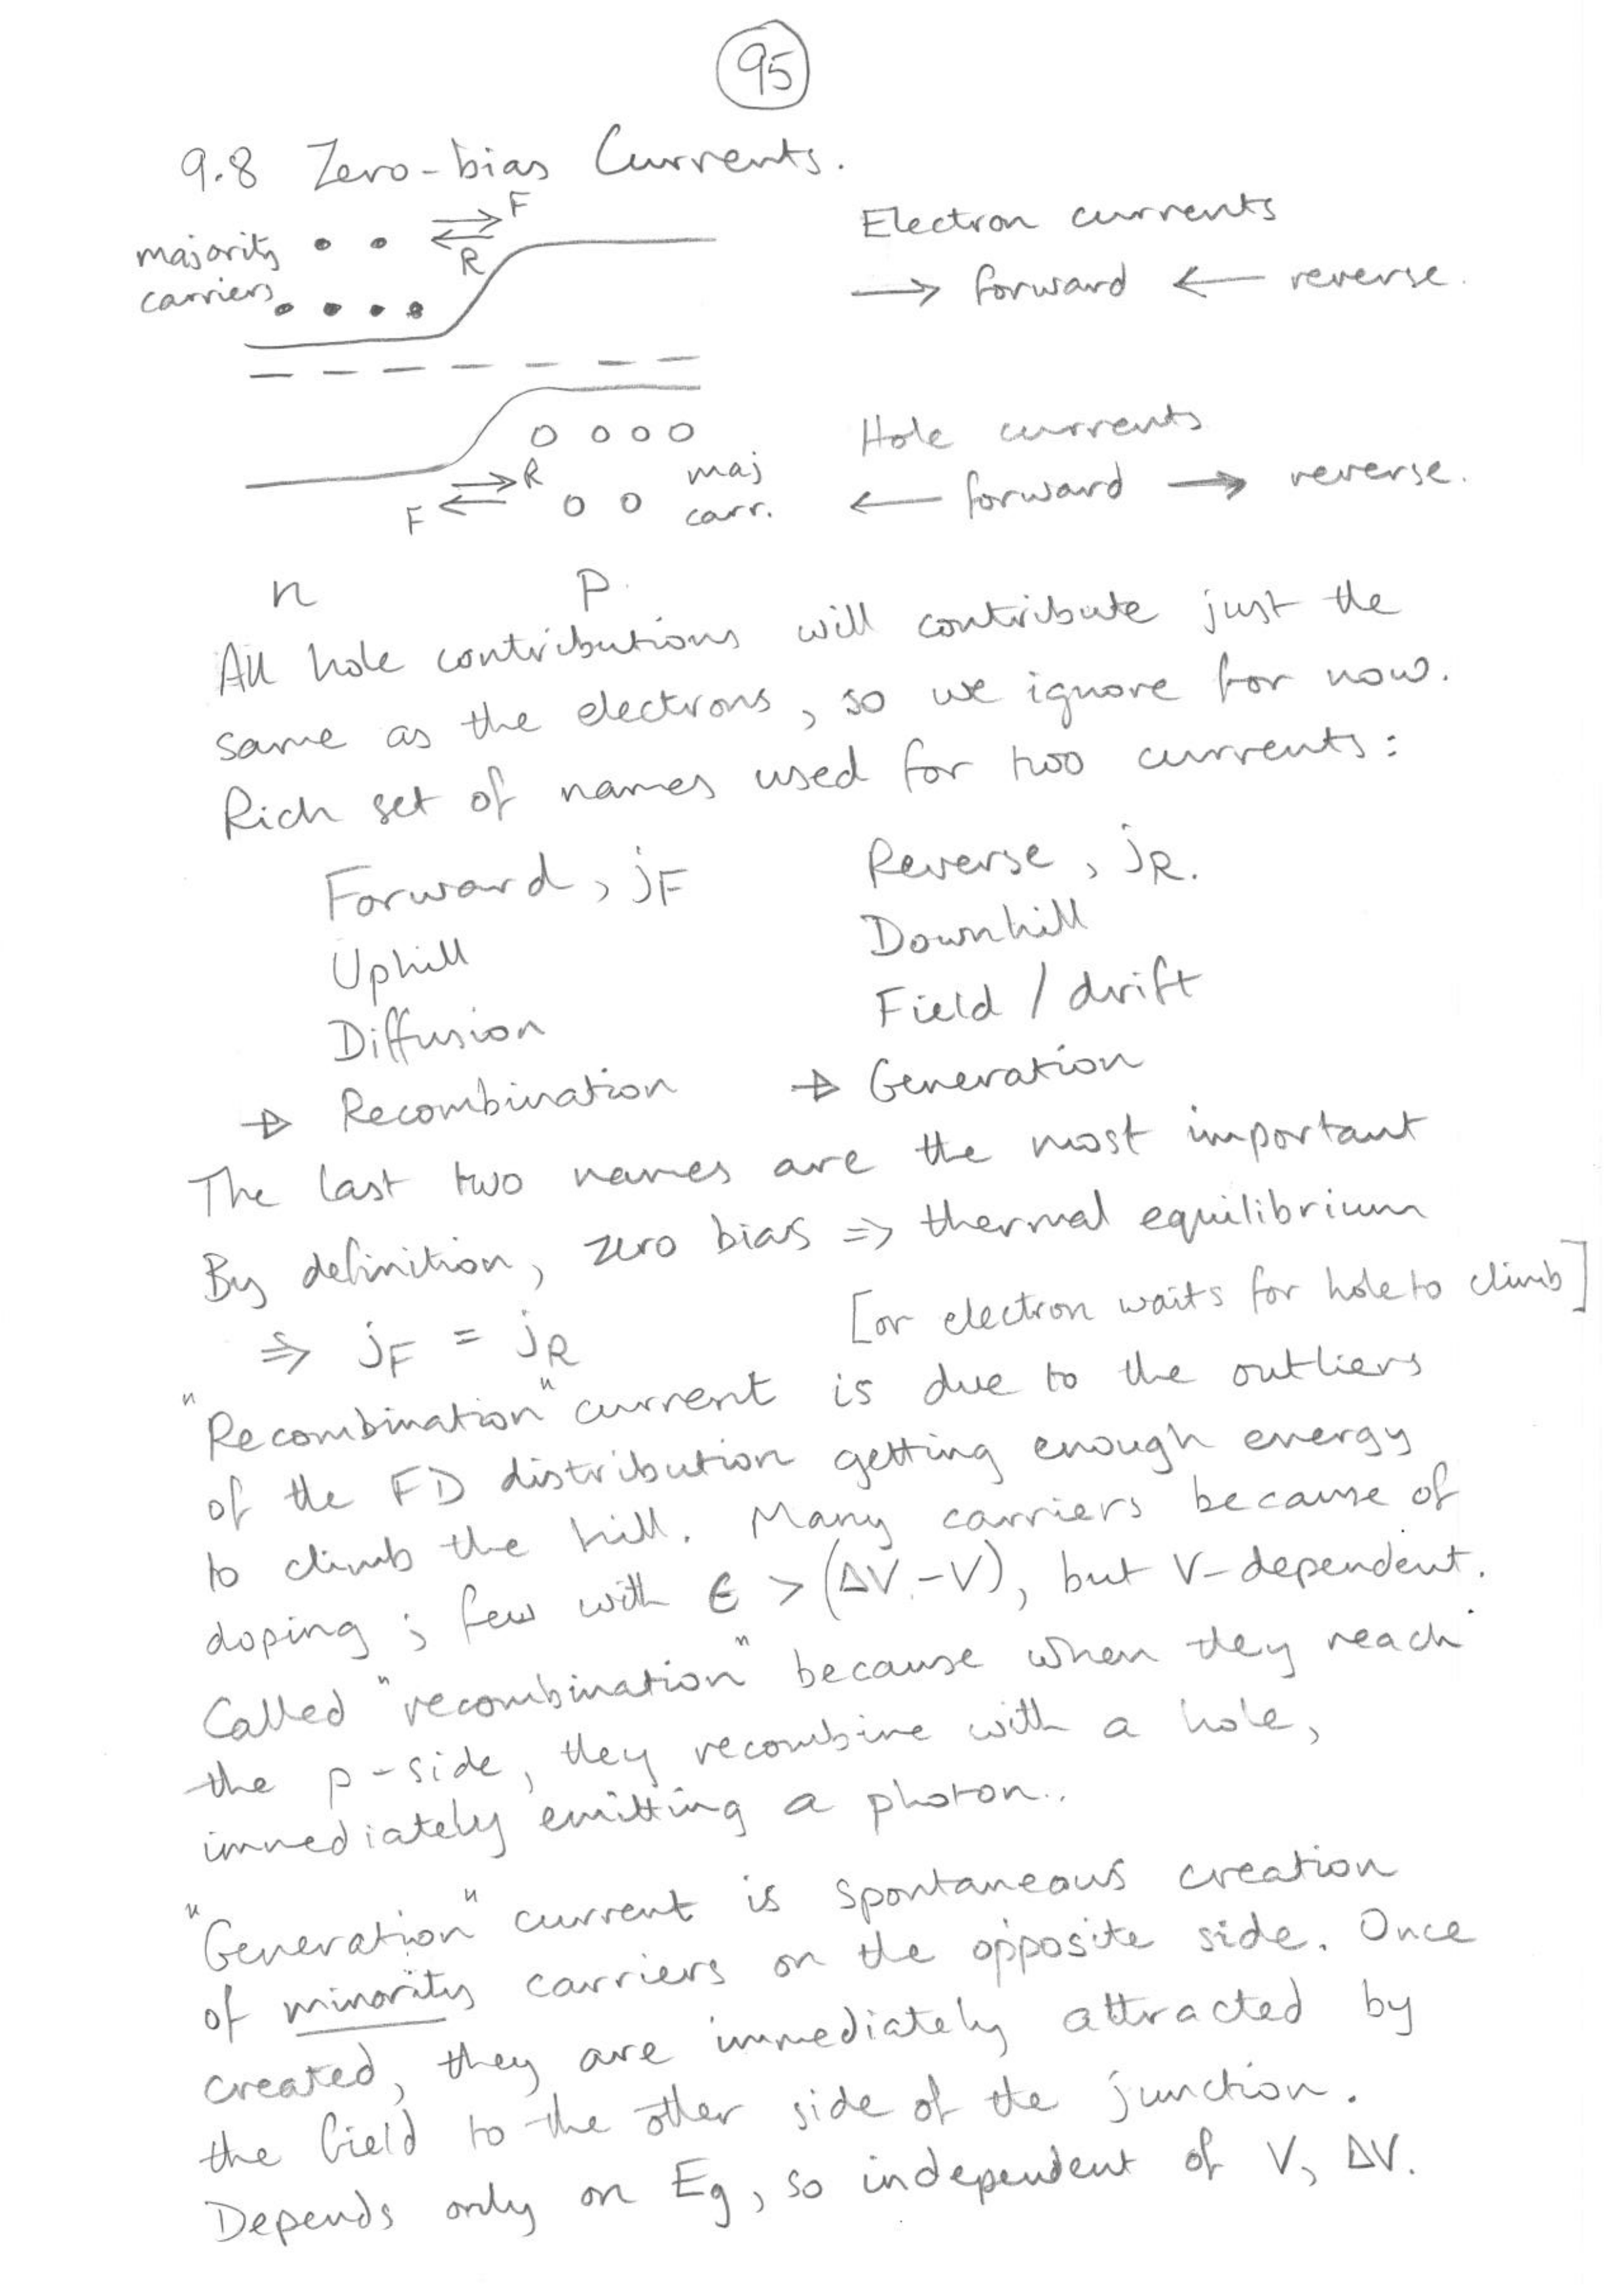 95
9.8 Zero-bias Currents.
majority
carriers
F
R
Electron currents
→ forward ← reverse.
Hole currents
← forward → reverse.
R
F
maj
carr.
n p
All hole contributions will contribute just the
same as the electrons, so we ignore for now.
Rich set of names used for two currents:
Forward, jF Reverse, jR.
Uphill Downhill
Diffusion Field / drift
→ Recombination → Generation
The last two names are the most important
By definition, zero bias ⇒ thermal equilibrium
⇒ jF = jR [or electron waits for hole to climb]
"Recombination" current is due to the outliers
of the FD distribution getting enough energy
to climb the hill. Many carriers because of
doping; few with ϵ > (ΔV-V), but V-dependent.
Called "recombination" because when they reach
the p-side, they recombine with a hole,
immediately emitting a photon..
"Generation" current is spontaneous creation
of minority carriers on the opposite side. Once
created, they are immediately attracted by
the field to the other side of the junction.
Depends only on Eg, so independent of V, ΔV.